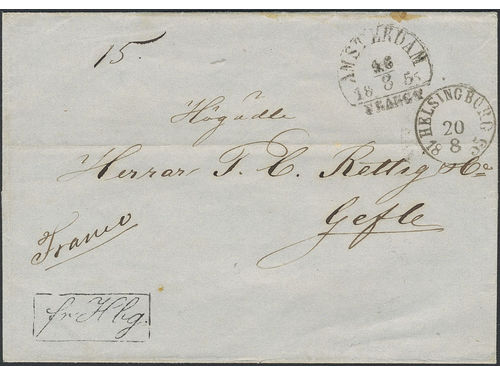 15.
AMSTERDAM
16
8
18 55
FRANCO
HELSINGBORG
20
8
18 55
Högädle
Herrar P. C. Rettig & Co
Gefle
Franco
fr: Hbg.